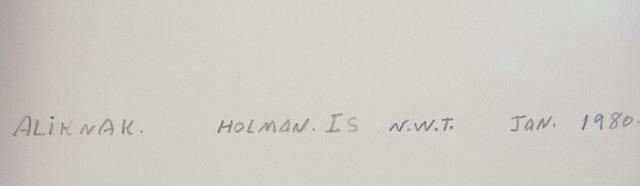 ALiKNAK. HOLMAN. IS N.W.T. JAN. 1980.